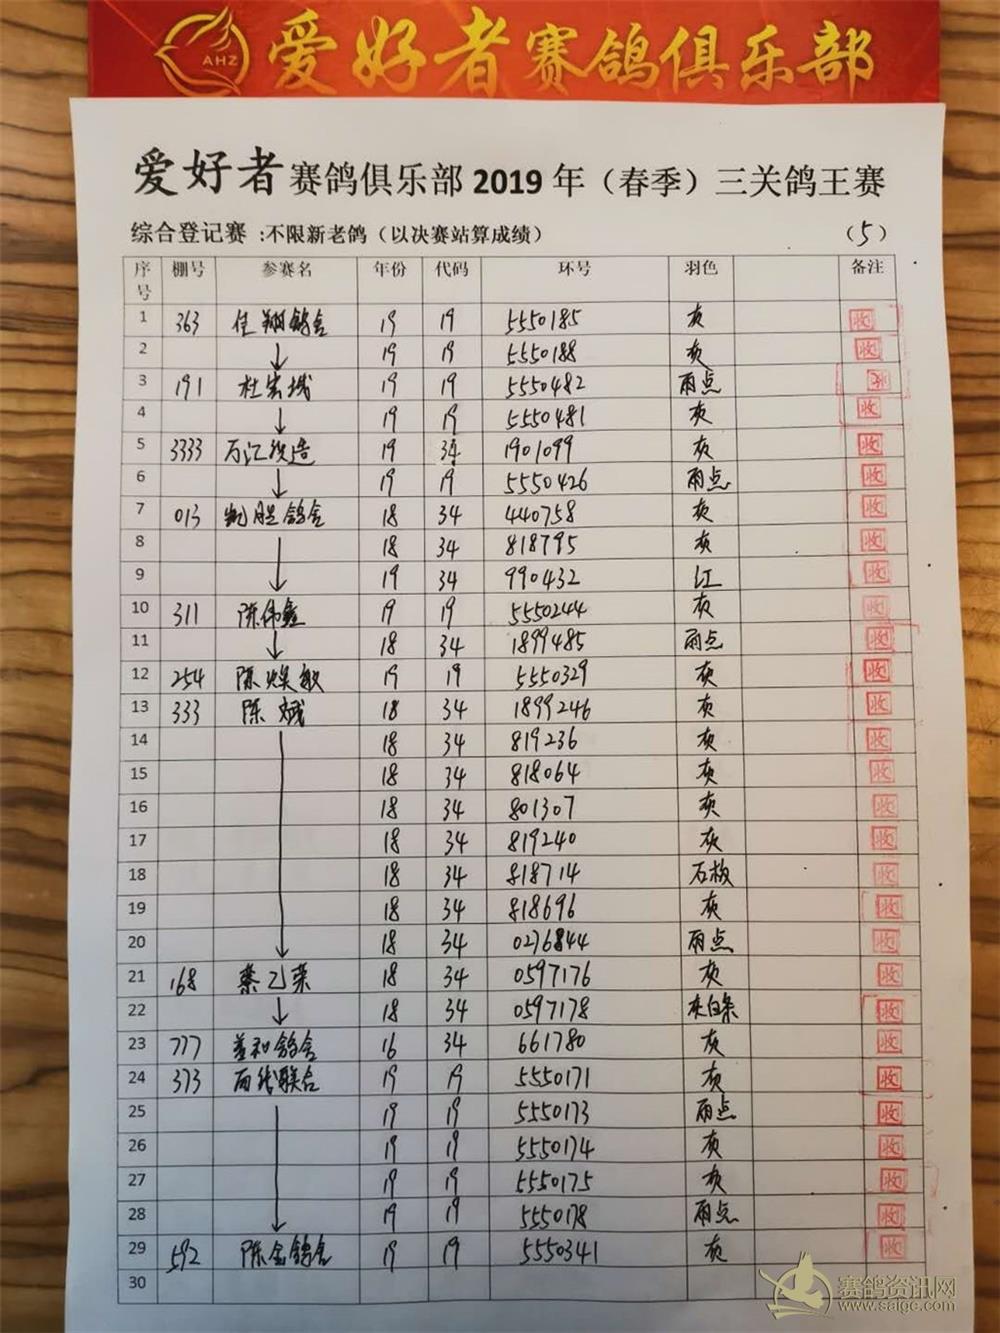 AHZ 爱好者赛鸽俱乐部
爱好者赛鸽俱乐部2019年（春季）三关鸽王赛
综合登记赛 :不限新老鸽（以决赛站算成绩） （5）
序号 棚号 参赛名 年份 代码 环号 羽色 备注
1 363 佳翔鸽舍 19 19 5550185 灰 收
2 ↓ 19 19 5550188 灰 收
3 191 杜宏城 19 19 5550482 雨点
4 ↓ 19 19 5550481 灰 收
5 3333 万汇改造 19 34 1901099 灰 收
6 ↓ 19 19 5550426 雨点 收
7 013 凯胜鸽舍 18 34 440758 灰 收
8 18 34 818795 灰 收
9 ↓ 19 34 990432 红 收
10 311 陈伟鑫 19 19 5550244 灰 收
11 ↓ 18 34 1899485 雨点 收
12 254 陈焕敏 19 19 5550329 灰 收
13 333 陈斌 18 34 1899246 灰 收
14 18 34 819236 灰 收
15 18 34 818064 灰 收
16 18 34 801307 灰 收
17 18 34 819240 灰 收
18 18 34 818714 石板 收
19 18 34 818696 灰 收
20 ↓ 18 34 0276844 雨点 收
21 168 蔡乙荣 18 34 0597176 灰 收
22 ↓ 18 34 0597178 灰白条 收
23 777 鸽舍 16 34 661780 灰 收
24 373 联合 19 19 5550171 灰 收
25 19 19 5550173 雨点 收
26 19 19 5550174 灰 收
27 19 19 5550175 灰 收
28 ↓ 19 19 5550178 雨点 收
29 592 陈金鸽舍 19 19 5550341 灰 收
30
赛鸽资讯网
www.saige.com